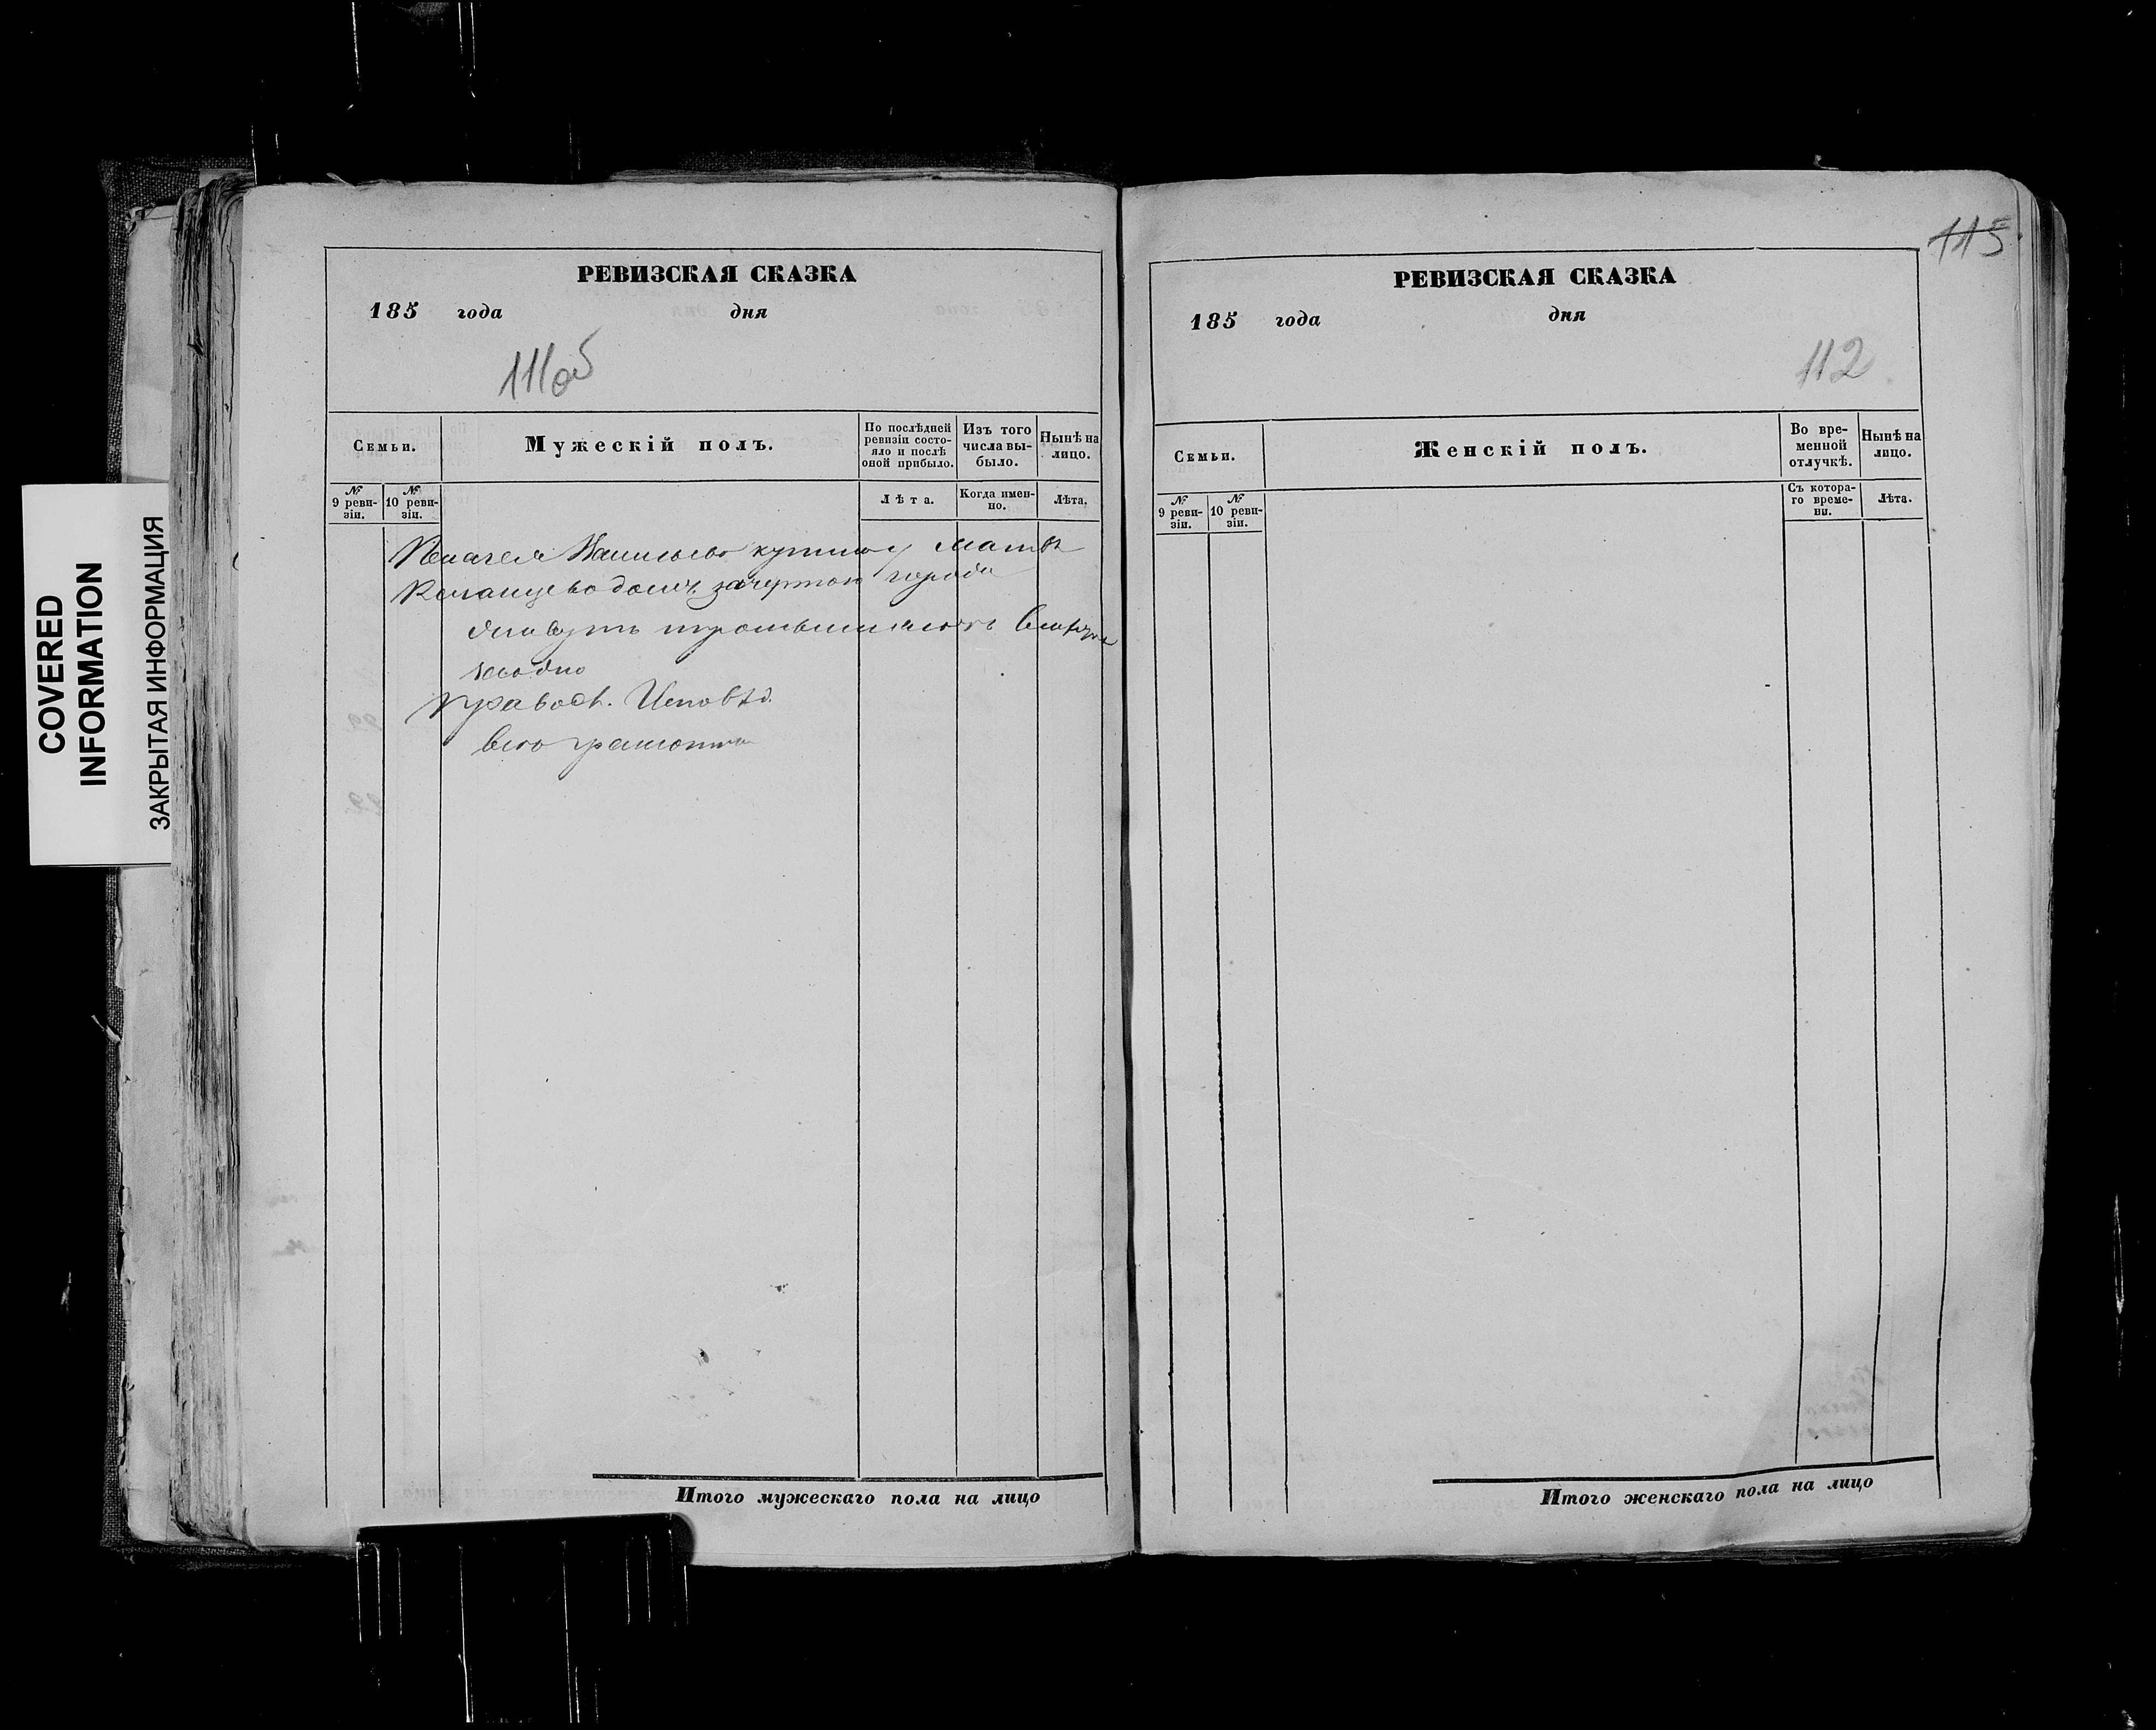 COVERED
INFORMATION
ЗАКРЫТАЯ ИНФОРМАЦИЯ
РЕВИЗСКАЯ СКАЗКА
185 года дня
111об
Семьи.
Мужескій полъ.
По послѣдней
ревизіи состо-
яло и послѣ
оной прибыло.
Изъ того
числа вы-
было.
Нынѣ на
лицо.
№
9 реви-
зіи.
№
10 реви-
зіи.
Лѣта.
Когда имен-
но.
Лѣта.
города
Правосл. Исповѣд.
Итого мужескаго пола на лицо
115
РЕВИЗСКАЯ СКАЗКА
185 года дня
112
Семьи.
Женскій полъ.
Во вре-
менной
отлучкѣ.
Нынѣ на
лицо.
№
9 реви-
зіи.
№
10 реви-
зіи.
Съ котора-
го време-
ни.
Лѣта.
Итого женскаго пола на лицо